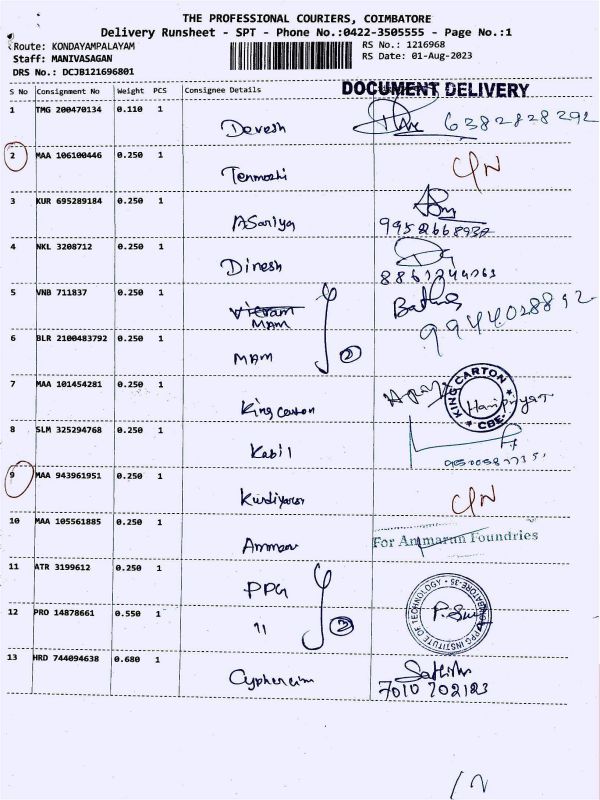 THE PROFESSIONAL COURIERS, COIMBATORE
Delivery Runsheet - SPT - Phone No.:0422-3505555 - Page No.:1
Route: KONDAYAMPALAYAM
RS No.: 1216968
Staff: MANIVASAGAN
RS Date: 01-Aug-2023
DRS No.: DCJB121696801
DOCUMENT DELIVERY
S No Consignment No Weight PCS Consignee Details
1 TMG 200470134 0.110 1
Devesh 6382828292
2 MAA 106100446 0.250 1
Tenmozhi
3 KUR 695289184 0.250 1
ASariya
4 NKL 3208712 0.250 1
Dinesh
5 VNB 711837 0.250 1
Vikram
MAM
9944028812
6 BLR 2100483792 0.250 1
MAM 2
7 MAA 101454281 0.250 1
King carton
KING CARTON CBE.
8 SLM 325294768 0.250 1
Kabil
9 MAA 943961951 0.250 1
10 MAA 105561885 0.250 1
For Ammarun Foundries
11 ATR 3199612 0.250 1
PPG
12 PRO 14878661 0.550 1
11 2
PPG INSTITUTE OF TECHNOLOGY
13 HRD 744094638 0.680 1
Sathish
7010702123